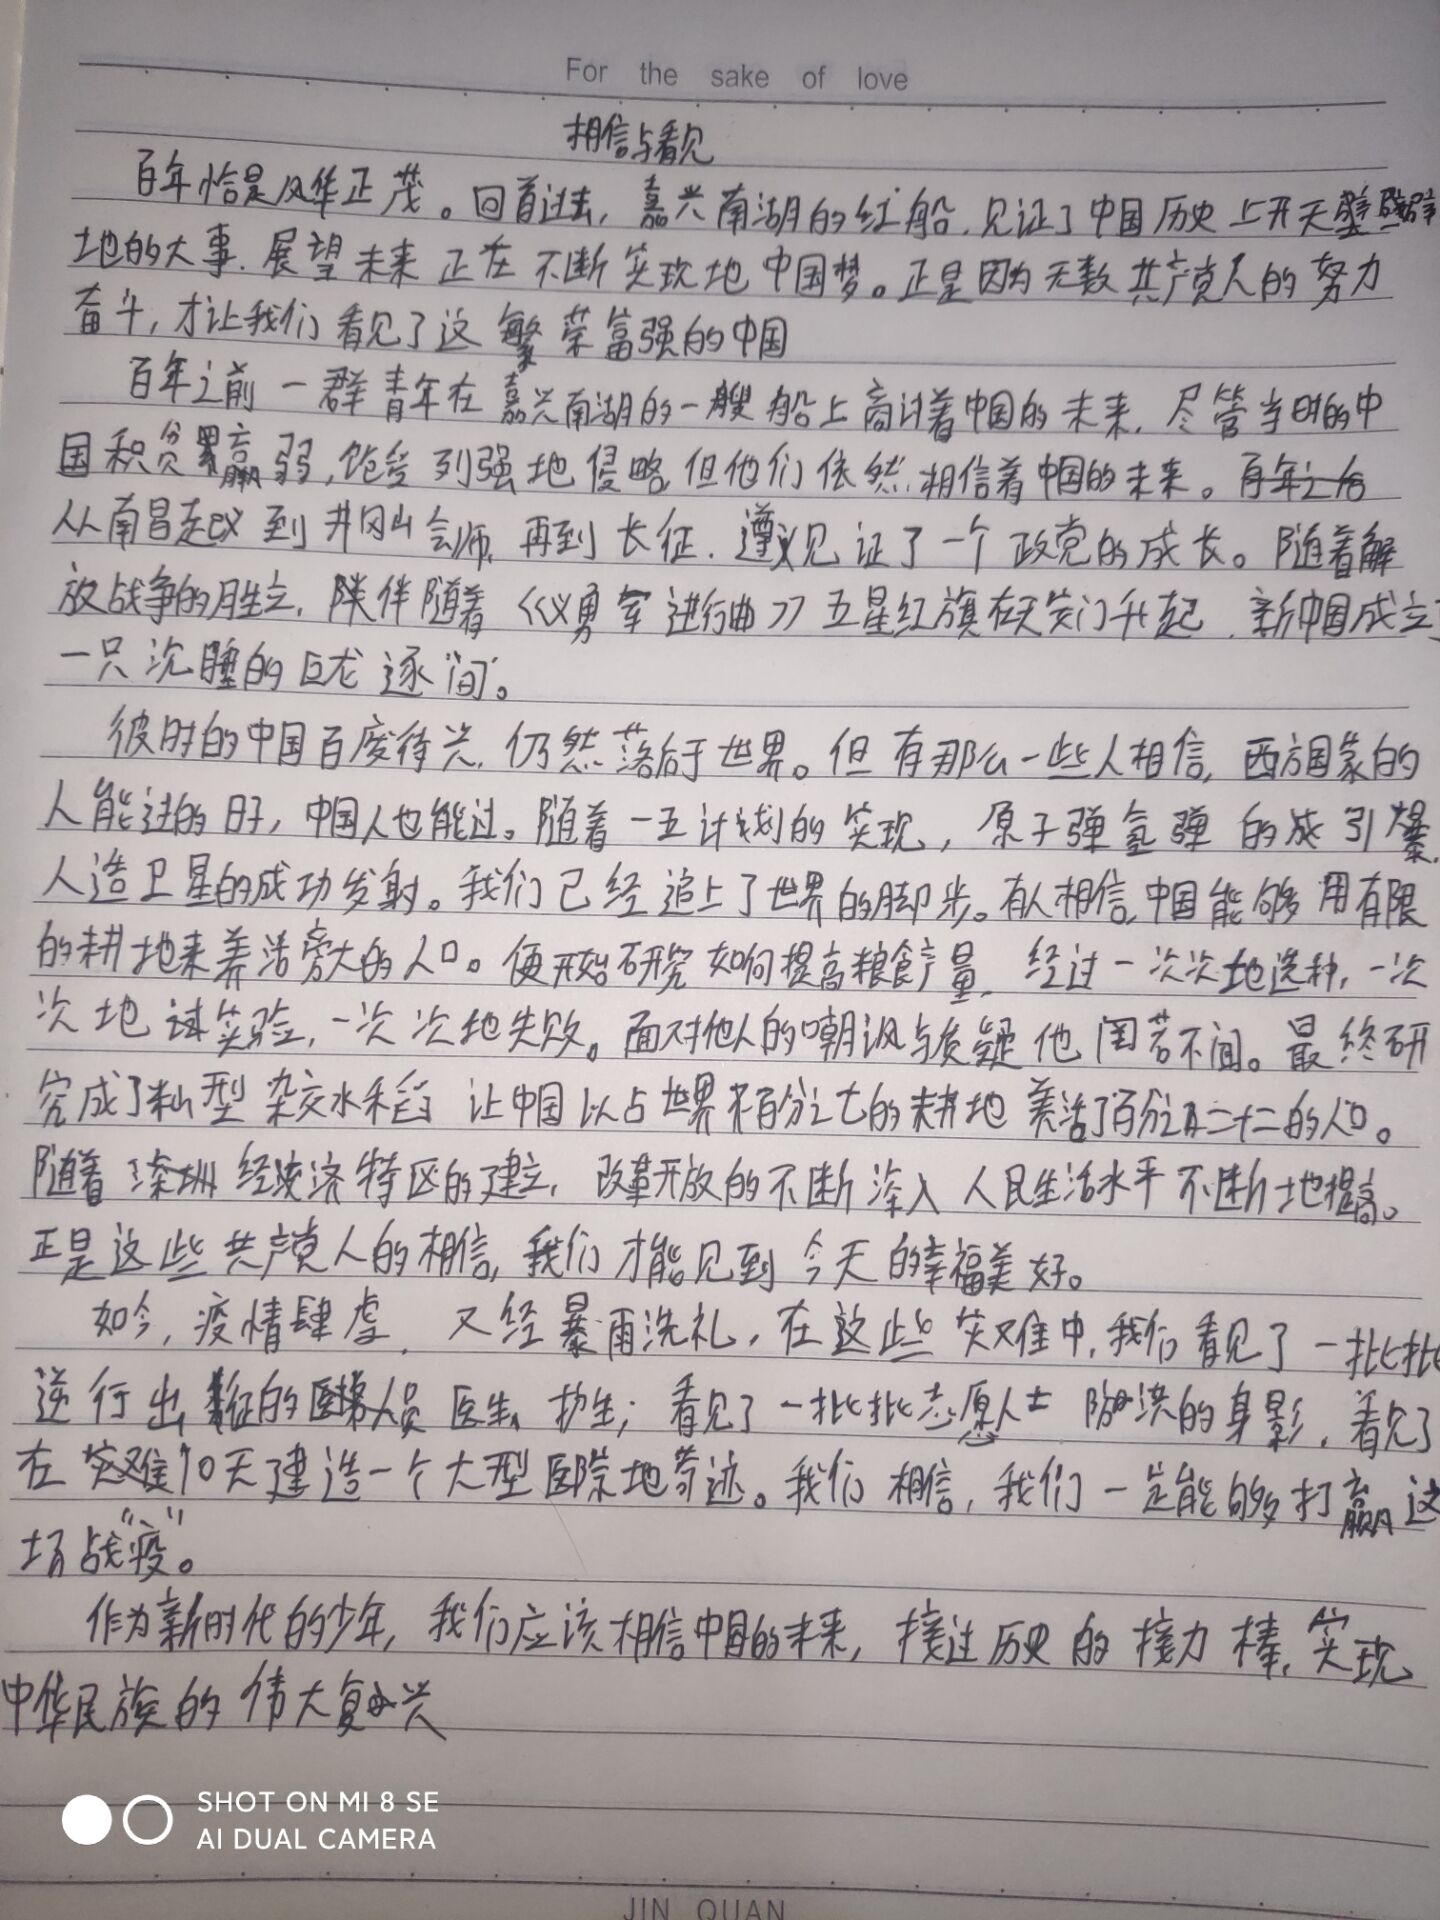 For the sake of love
相信与看见
百年恰是风华正茂。回首过去,嘉兴南湖的红船,见证了中国历史上开天辟
地的大事.展望未来正在不断实现地中国梦。正是因为无数共产党人的努力
奋斗,才让我们看见了这繁荣富强的中国
百年之前一群青年在嘉兴南湖的一艘船上商讨着中国的未来,尽管当时的中
国积贫羸弱,饱受列强地侵略,但他们依然相信着中国的未来。百年之后
从南昌起义到井冈山会师,再到长征.遵义见证了一个政党的成长。随着解
放战争的胜立,伴随着《义勇军进行曲》五星红旗在天安门升起.新中国成立了
一只沉睡的巨龙逐间。
彼时的中国百废待兴,仍然落后于世界。但有那么一些人相信,西方国家的
人能过的日子,中国人也能过。随着一五计划的实现,原子弹氢弹的成引爆,
人造卫星的成功发射。我们已经追上了世界的脚步。有人相信,中国能够用有限
的耕地来养活旁大的人口。便开始研究如何提高粮食产量,经过一次次地选种,一次
次地试实验,一次次地失败。面对他人的嘲讽与质疑他闻若不闻。最终研
究成了籼型杂交水稻让中国以占世界百分之七的耕地养活了百分之二十二的人口。
随着深圳经济特区的建立,改革开放的不断深入人民生活水平不断地提高。
正是这些共产党人的相信,我们才能见到今天的幸福美好。
如今,疫情肆虐,又经暴雨洗礼,在这些灾难中,我们看见了一批批
逆行出征的医生、护生;看见了一批批志愿人士防洪的身影,看见了
在灾难10天建造一个大型医院地奇迹。我们相信,我们一定能够打赢这
场战“疫”。
作为新时代的少年,我们应该相信中国的未来,接过历史的接力棒,实现
中华民族的伟大复兴
SHOT ON MI 8 SE
AI DUAL CAMERA
JIN QUAN